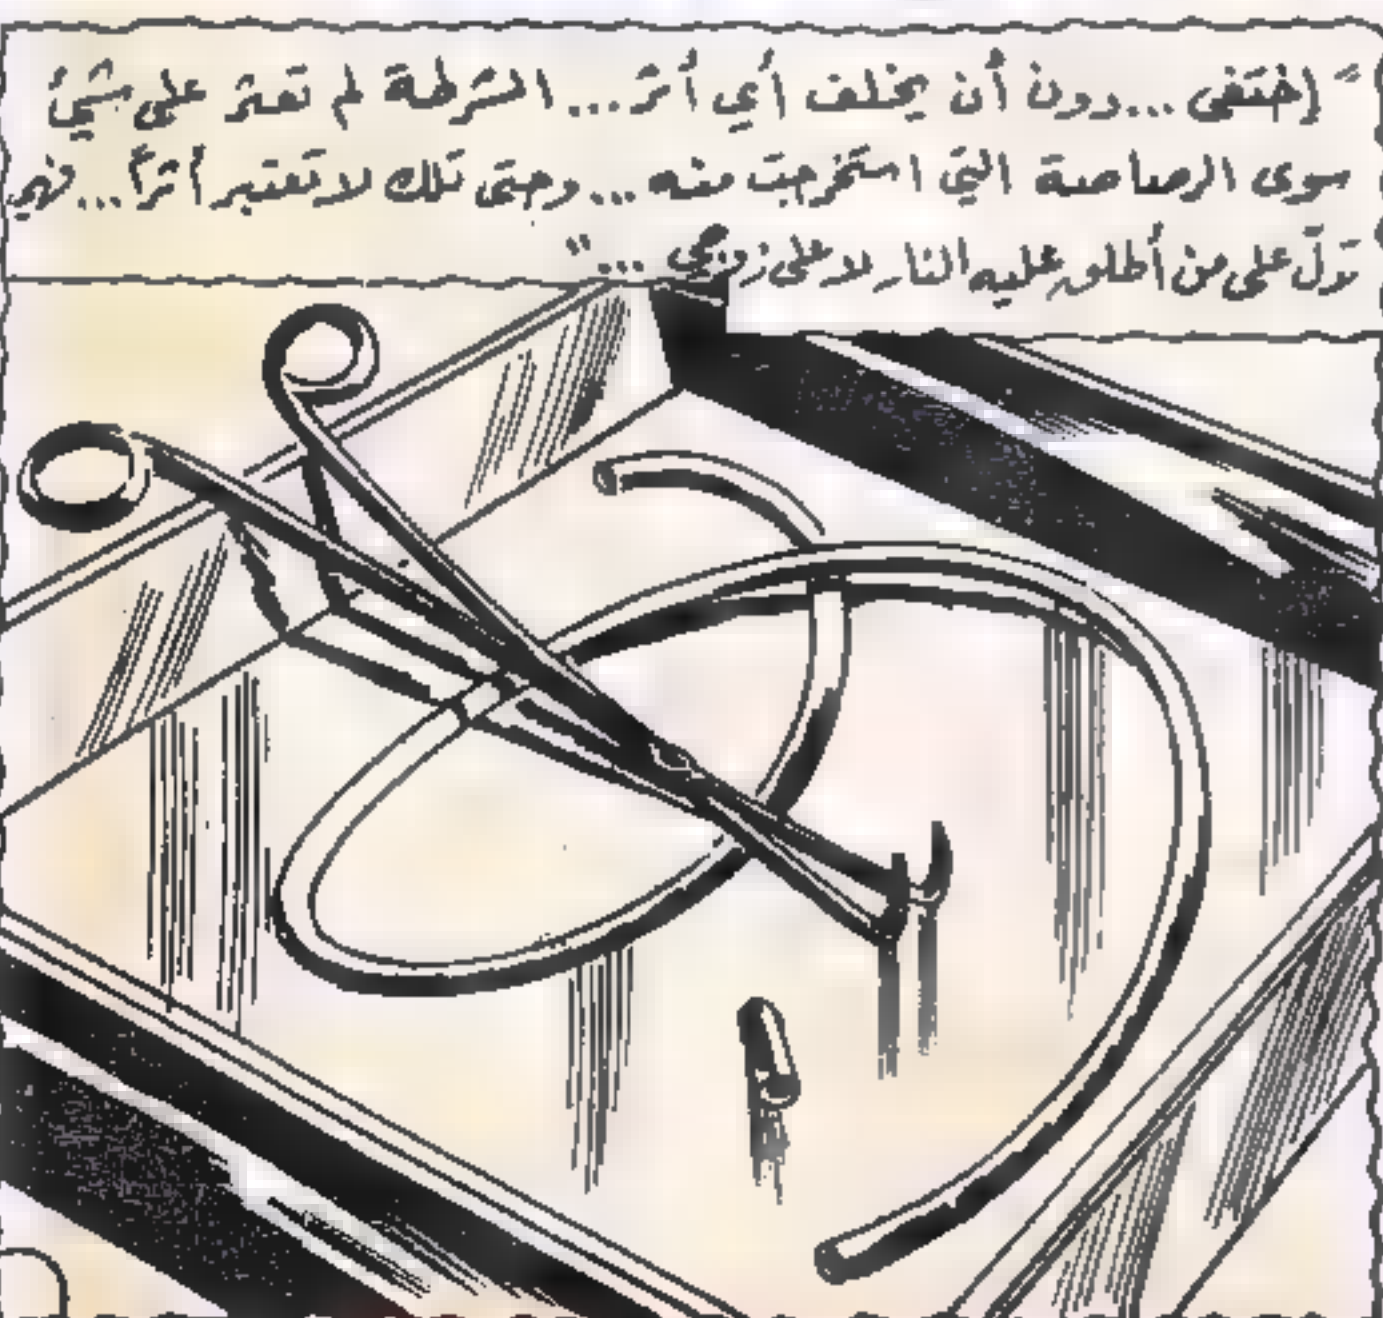 "إختفى ... دون أن يخلف أي أثر ... الشرطة لم تعثر على شيئ
سوى الرصاصة التي استخرجت منه ... وحتى تلك لا تعتبر أثراً ... فهي
تدلّ على من أطلق عليه النار لا على زوجي ... "